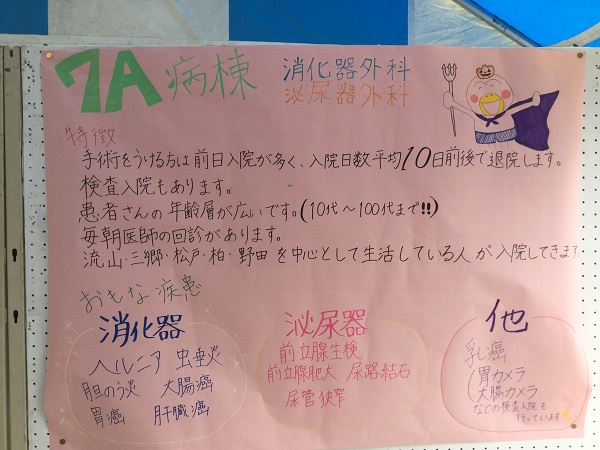 7A病棟
消化器外科
泌尿器外科
特徴
手術をうける方は前日入院が多く、入院日数平均10日前後で退院します。
検査入院もあります。
患者さんの年齢層が広いです。(10代〜100代まで!!)
毎朝医師の回診があります。
流山・三郷・松戸・柏・野田を中心として生活している人が入院してきます
おもな疾患
消化器
ヘルニア 虫垂炎
胆のう炎 大腸癌
胃癌 肝臓癌
泌尿器
前立腺生検
前立腺肥大 尿路結石
尿管狭窄
他
乳癌
(胃カメラ
大腸カメラ
などの検査入院も
行っています